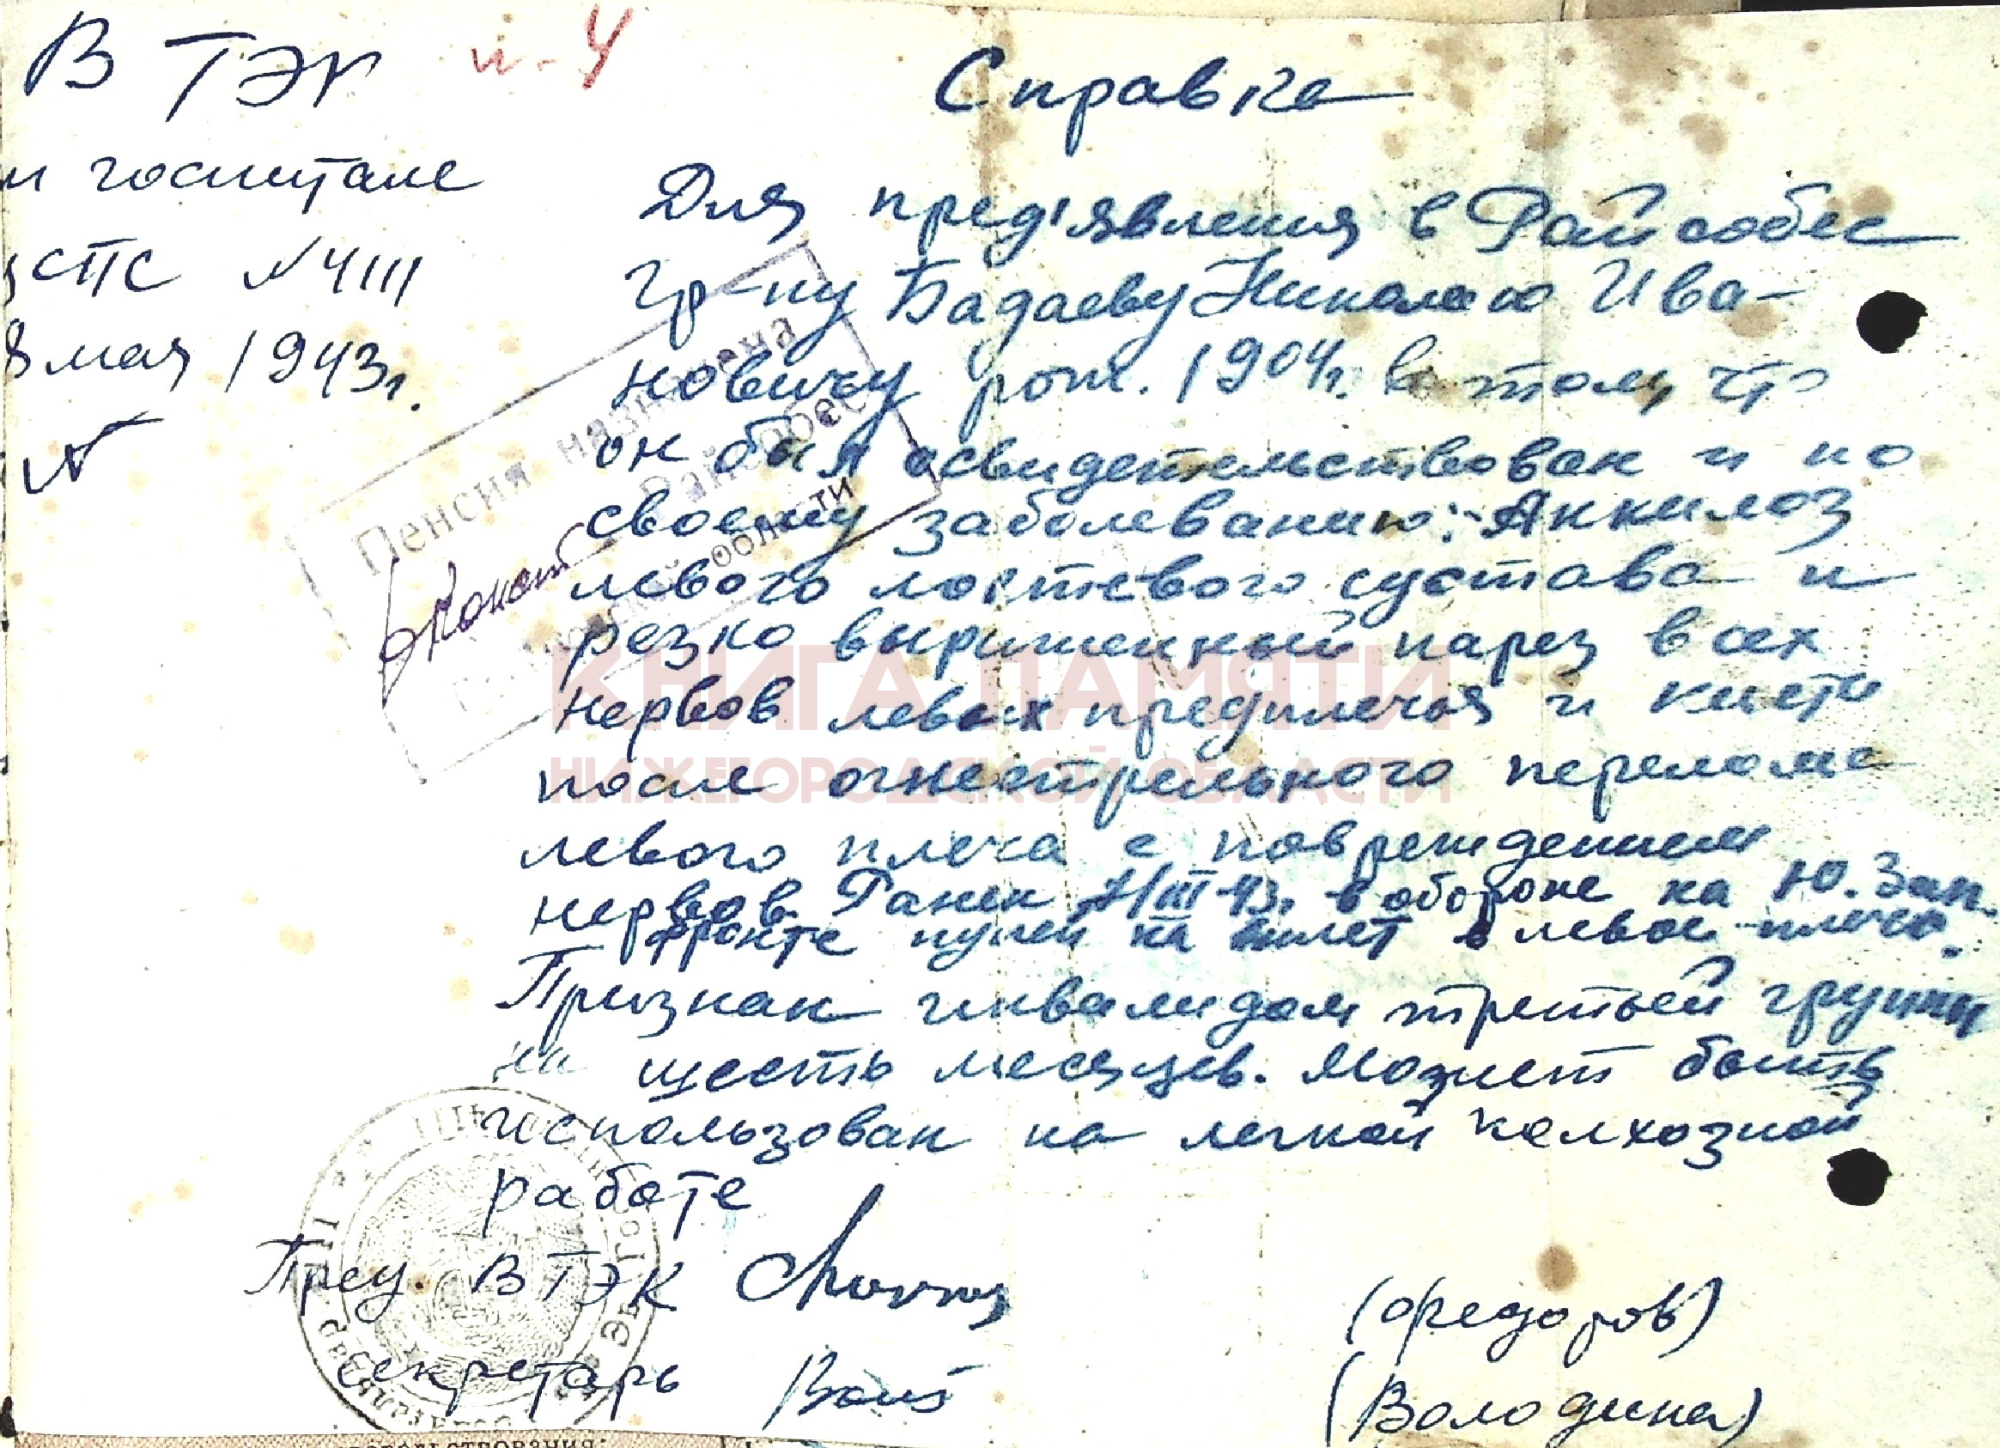 ВТЭК
и-4
госпитале
СПС №4111
8 мая 1943г.
№
Справка
Для пред'явления в Райсобес
Гр-ну Бадаеву Николаю Ива-
новичу рож. 1904г. в том, что
он был освидетельствован и по
своему заболеванию: Анкилоз
левого локтевого сустава и
резко выраженный парез всех
нервов левых предплечья и кисти
после огнестрельного перелома
левого плеча с повреждением
нервов. Ранен /III-43г. в обороне на Ю. Зап.
фронте пулей на вылет в левое плечо.
Признан инвалидом третьей группы
на шесть месяцев. Может быть
использован на легкой колхозной
работе
Пред. ВТЭК
(Федоров)
Секретарь
(Володина)
Пенсия назначена
Райсобес
области
КНИГА ПАМЯТИ
НИЖЕГОРОДСКОЙ ОБЛАСТИ